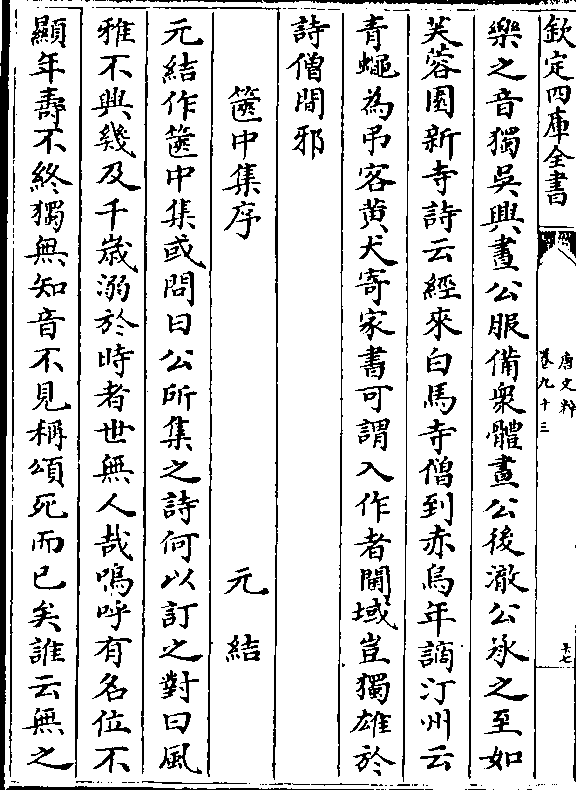 欽定四庫全書
唐文粹
卷九十三
樂之音獨吳興晝公服備衆體晝公後澈公承之至如
芙蓉園新寺詩云經來白馬寺僧到赤烏年謫汀州云
青蠅為吊客黄犬寄家書可謂入作者閫域豈獨雄於
詩僧間邪
篋中集序
元結
元結作篋中集或問曰公所集之詩何以訂之對曰風
雅不興幾及千歲溺於時者世無人哉嗚呼有名位不
顯年壽不終獨無知音不見稱頌死而已矣誰云無之